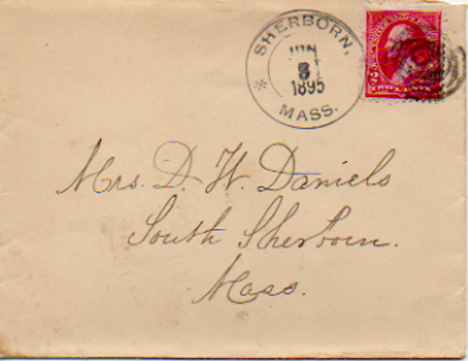 SHERBORN,
JUN
8
1895
MASS.
Mrs. D. W. Daniels
South Sherborn.
Mass.